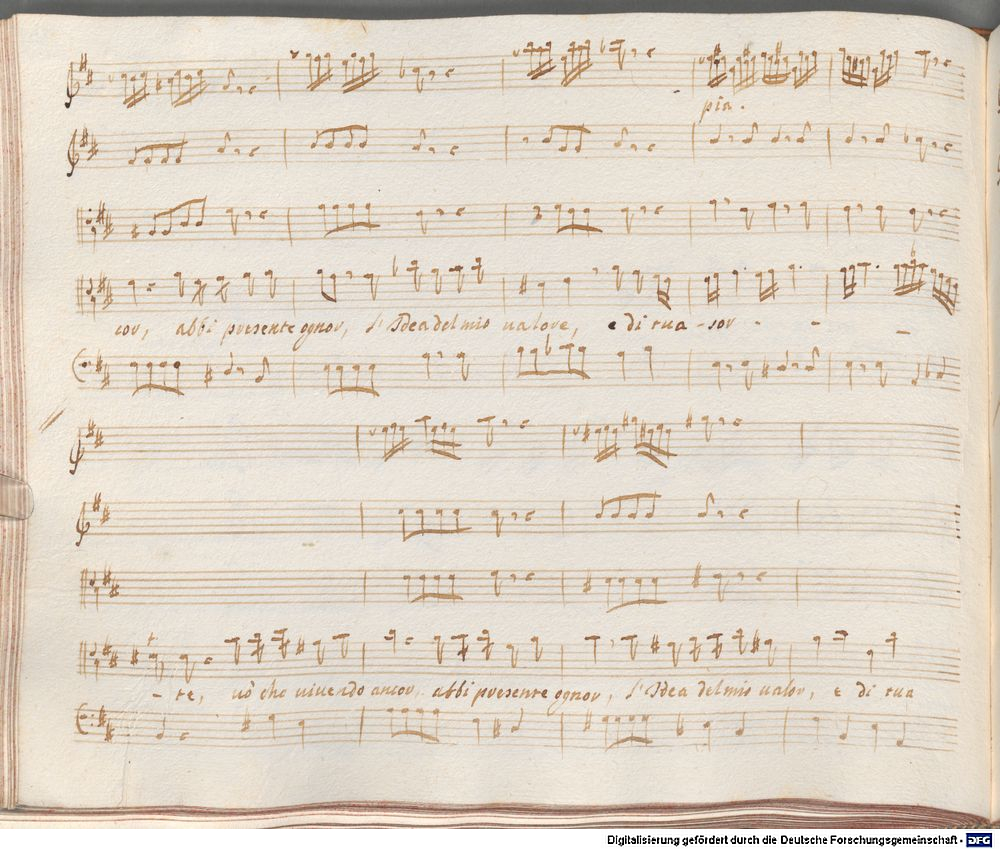 pia.
cor, abbi presente ognor, l'Idea del mio valore, e di tua - sor - - -
- te, uò che vivendo ancor, abbi presente ognor, l'Idea del mio valor, e di tua
Digitalisierung gefördert durch die Deutsche Forschungsgemeinschaft - DFG